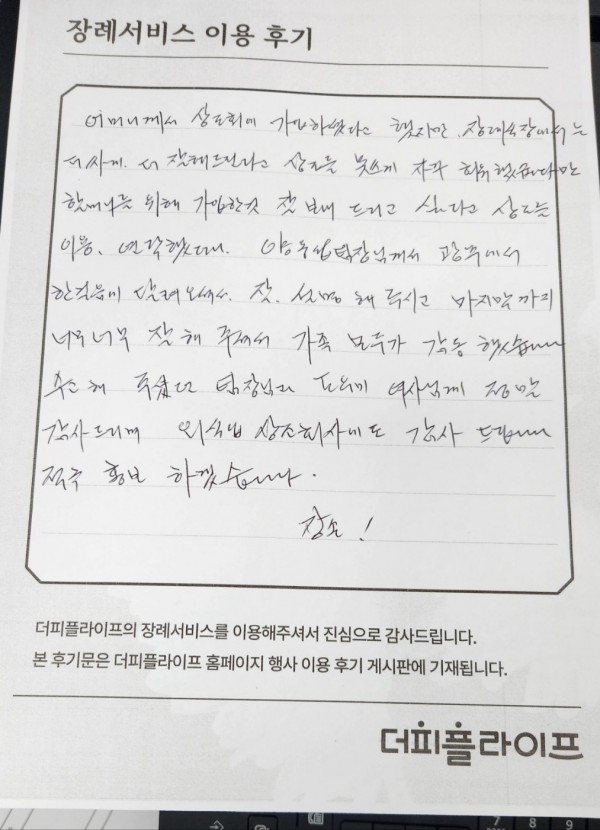 장례서비스 이용 후기
어머니께서 상조회에 가입하셨다고 했지만, 장례식장에서는
더 잘해드린다고 상조를 못쓰게 자꾸 회유했습니다만
위해 가입한것 잘 보내 드리고 싶다고 상조를
이용, 연락했더니. 팀장님께서 광주에서
한걸음에 달려오셔서. 잘. 설명 해 주시고 마지막까지
너무너무 잘 해 주셔서 가족 모두가 감동 했습니다
수고 해 주셨던 팀장님과 도우미 여사님께 정말
감사드리며 상조회사에도 감사 드립니다
적극 홍보 하겠습니다.
더피플라이프의 장례서비스를 이용해주셔서 진심으로 감사드립니다.
본 후기문은 더피플라이프 홈페이지 행사 이용 후기 게시판에 기재됩니다.
더피플라이프
7 8 9